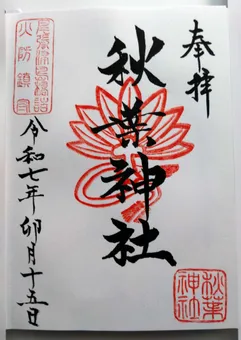 奉拝
秋葉神社
秋葉
神社
令和七年卯月十五日
火防鎮守